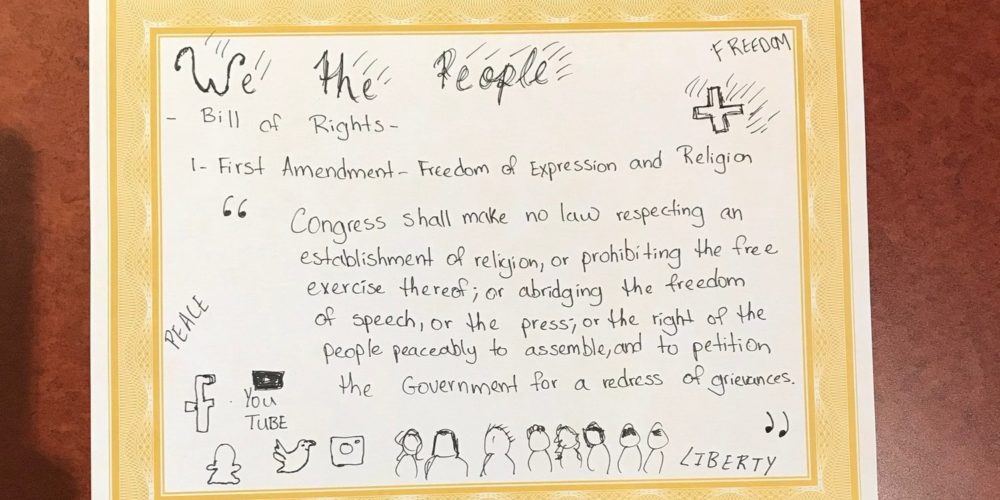 We the People
FREEDOM
- Bill of Rights -
1- First Amendment - Freedom of Expression and Religion
“ Congress shall make no law respecting an
establishment of religion, or prohibiting the free
exercise thereof; or abridging the freedom
of speech, or the press; or the right of the
people peaceably to assemble, and to petition
the Government for a redress of grievances. ”
PEACE
f
YOU
TUBE
LIBERTY